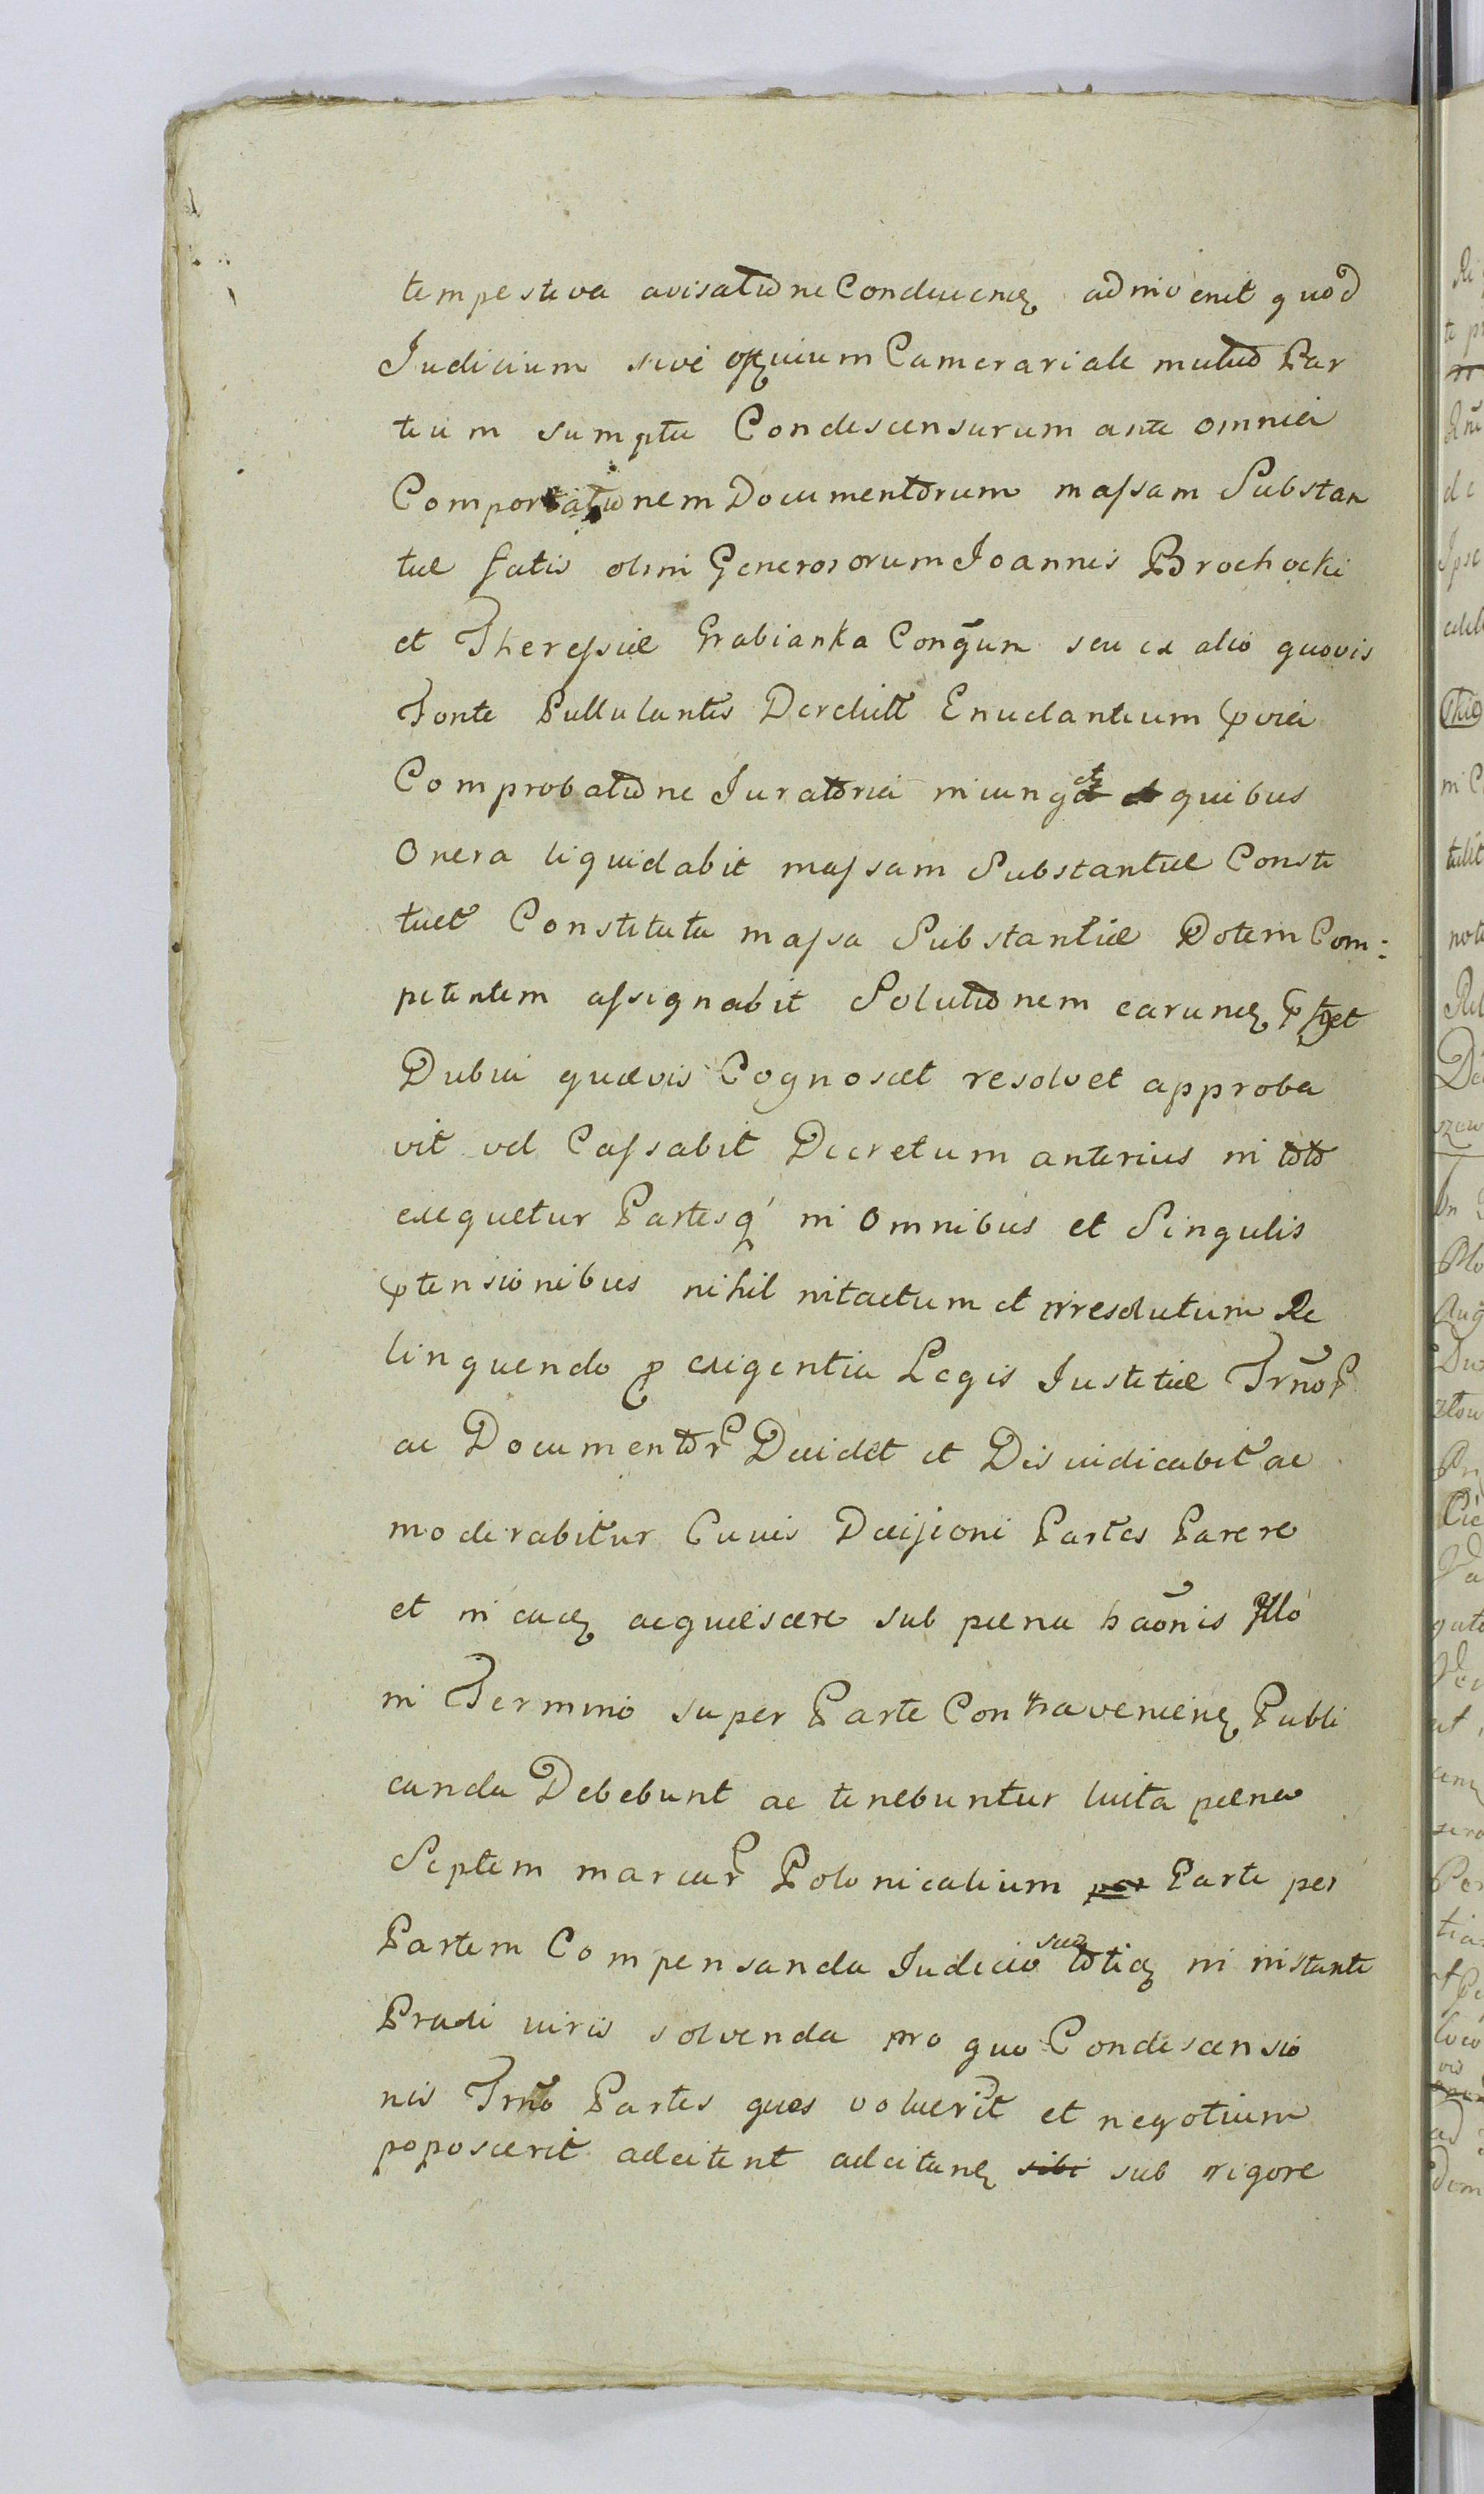 tempestiva avisatione Conducenq adinvenit quod
Judicium sive offcium Camerariale mutuo Par
tium sumptu Condescensurum ante omnia
Comportationem Documentorum massam Substan
tiæ fatis olim Generosorum Joannis Brochocki
et Theressiæ Grabianka Congum seu ex alio quovis
Fonte Pullulantes Derelict Enuclantium pvia
Comprobatione Juratoria iniunget quibus
Onera liquidabit massam Substantiæ Consti
tuet Constituta massa Substantiæ Dotem Com:
petentem assignabit Solutionem earunq
Dubia quævis Cognoscet resolvet approba
vit vel Cassabit Decretum anterius in toto
exequetur Partesq in Omnibus et Singulis
ptensionibus nihil intactum et irresolutum Re
linquendo p exigentia Legis Justitiæ Trnor
ac Documentor Decidet et Disiudicabit ac
moderabitur Cuius Decisioni Partes Parere
et in eaq acquiescere sub pæna baõnis Illo
in Termino super Parte Contravenienq Publi
canda Debebunt ac tenebuntur luita pæna
Septem marcar Polonicalium per Parte per
Partem Compensanda Judicio suo totiq in instante
Pradi viris solvenda pro quo Condescensio
nis Trno Partes quos voluerit et negotium
poposcerit adcitent adcitanq sibi sub rigore